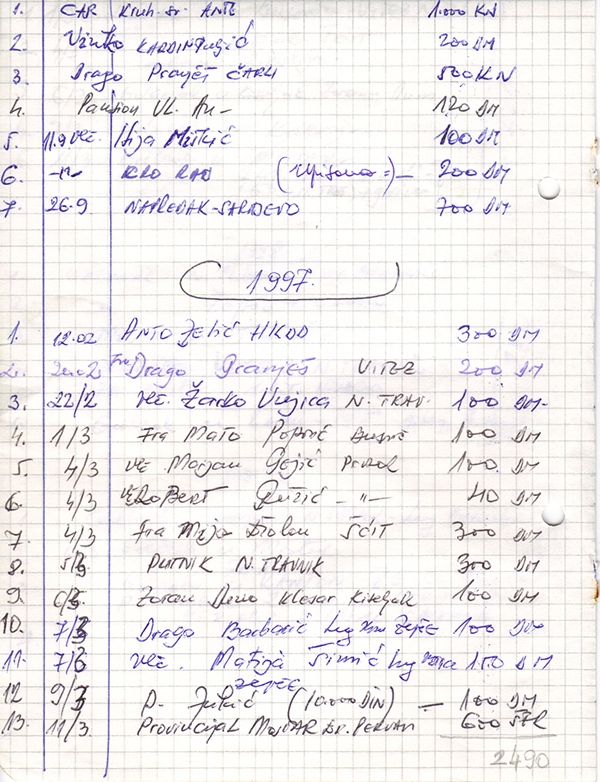 1. CAR Kruh. sv. ANTE 1.000 KN
2. Vinko KARDINPuljić 200 DM
3. Drago Pranješ ČARLI 500 KN
4. Pansion Vl. An- 120 DM
5. 11.9 vlč. Ilija 100 DM
6. -"- KRO RAD ( =)- 200 DM
7. 26.9 NAPREDAK-SARAJEVO 700 DM
1997.
1. 12.02 ANTO Jelić HKDD 300 DM
2. 20.02 Fra Drago Pranješ VITEZ 200 DM
3. 22/2 vlč. Žarko Vujica N. TRAV. 100 DM-
4. 1/3 Fra Mato Popović 100 DM
5. 4/3 vlč Marjan Gojić 100 DM
6. 4/3 vlč RoBERT Ružić -"- 40 DM
7. 4/3 Fra Mijo Džolan ŠĆIT 300 DM
8. 5/3 PUTNIK N. TRAVNIK 300 DM
9. 6/3. Zoran Deno klesar Kiseljak 100 DM
10. 7/3 Drago Barbarić Žepče 100 DM
11. 7/3 vlč. Matija Šimić 150 DM
žepče
12 9/3 D. Jukić (10.000 DIN) - 100 DM
13. 11/3 Provincijal MOSTAR Dr. PERVAN 600 ŠFR
2490